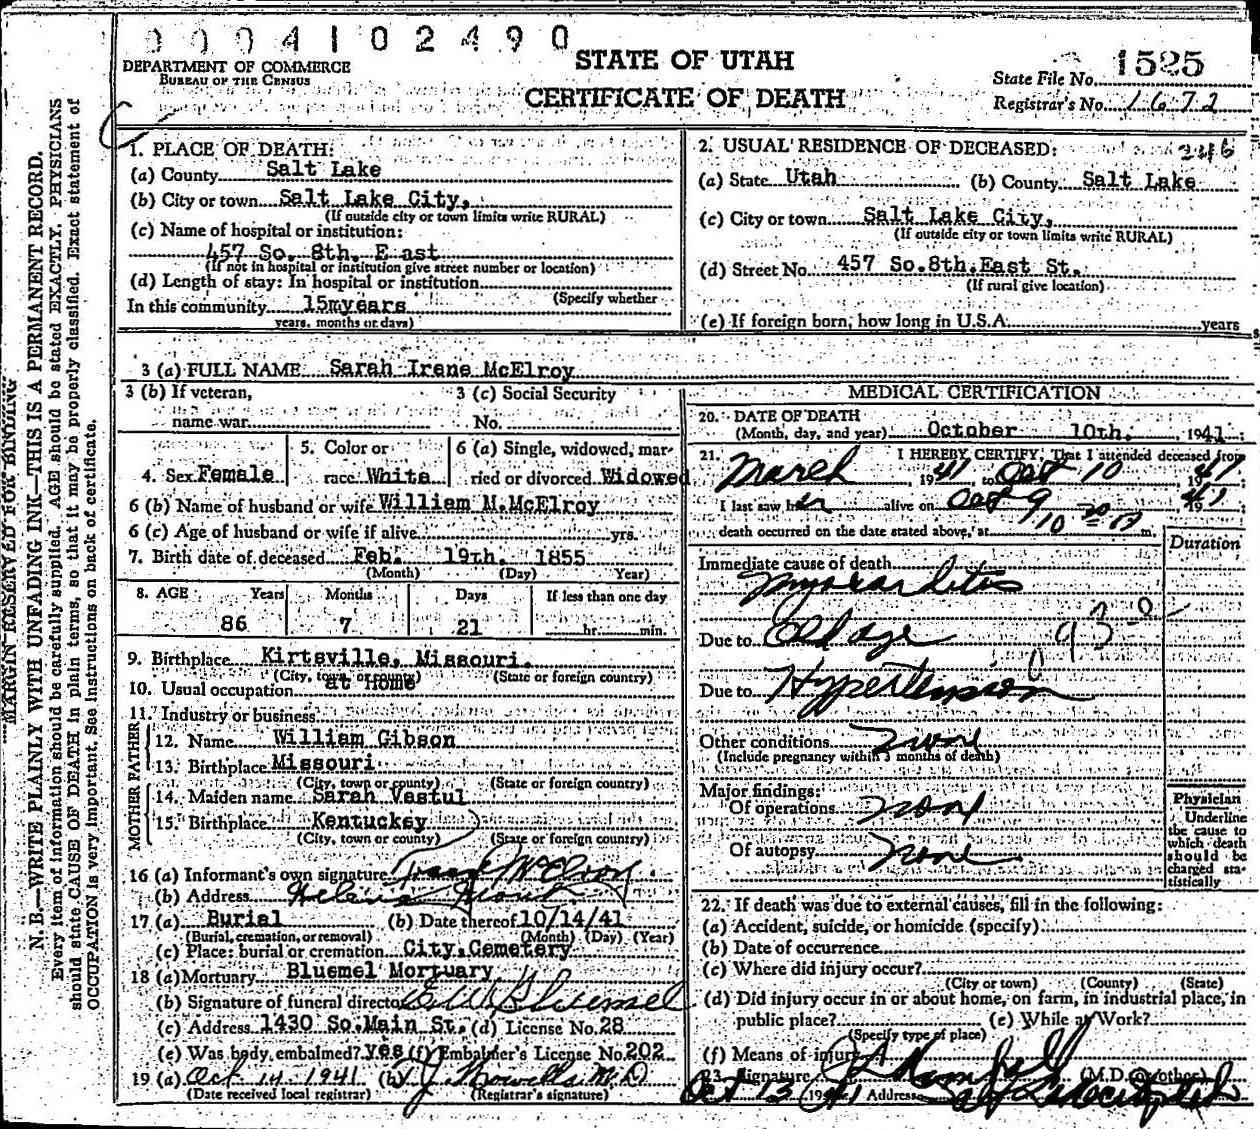 0004102490
DEPARTMENT OF COMMERCE
BUREAU OF THE CENSUS
STATE OF UTAH
CERTIFICATE OF DEATH
State File No. 1525
Registrar's No. 1672
MARGIN RESERVED FOR BINDING
N. B.—WRITE PLAINLY WITH UNFADING INK—THIS IS A PERMANENT RECORD.
Every item of information should be carefully supplied. AGE should be stated EXACTLY. PHYSICIANS
should state CAUSE OF DEATH in plain terms, so that it may be properly classified. Exact statement of
OCCUPATION is very important. See instructions on back of certificate.
1. PLACE OF DEATH:
(a) County Salt Lake
(b) City or town Salt Lake City,
(If outside city or town limits write RURAL)
(c) Name of hospital or institution:
457 So. 8th. E ast
(If not in hospital or institution give street number or location)
(d) Length of stay: In hospital or institution
(Specify whether
In this community 15myears
years, months or days)
2. USUAL RESIDENCE OF DECEASED: 246
(a) State Utah (b) County Salt Lake
(c) City or town Salt Lake City,
(If outside city or town limits write RURAL)
(d) Street No. 457 So.8th.East St.
(If rural give location)
(e) If foreign born, how long in U.S.A. years
3 (a) FULL NAME Sarah Irene McElroy
3 (b) If veteran,
name war
3 (c) Social Security
No.
4. Sex Female
5. Color or
race White
6 (a) Single, widowed, mar-
ried or divorced Widowed
6 (b) Name of husband or wife William M.McElroy
6 (c) Age of husband or wife if alive yrs.
7. Birth date of deceased Feb. 19th. 1855
(Month) (Day) Year)
8. AGE Years Months Days If less than one day
86 7 21 hr. min.
9. Birthplace Kirtsville, Missouri.
(City, town or county) (State or foreign country)
10. Usual occupation at Home
11. Industry or business
FATHER
12. Name William Gibson
13. Birthplace Missouri
(City, town or county) (State or foreign country)
MOTHER
14. Maiden name Sarah Vestul
15. Birthplace Kentuckey
(City, town or county) (State or foreign country)
16 (a) Informant's own signature McElroy
(b) Address Helena
17 (a) Burial (b) Date thereof 10/14/41
(Burial, cremation, or removal) (Month) (Day) (Year)
(c) Place: burial or cremation City Cemetery
18 (a) Mortuary Bluemel Mortuary
(b) Signature of funeral director E W Bluemel
(c) Address 1430 So.Main St. (d) License No. 28
(e) Was body embalmed? yes (f) Embalmer's License No. 202
19 (a) Oct 14. 1941 (b) T J. Howells M.D
(Date received local registrar) (Registrar's signature)
MEDICAL CERTIFICATION
20. DATE OF DEATH
(Month, day, and year) October 10th. , 1941
21. I HEREBY CERTIFY, That I attended deceased from
March , 1941 to Oct 10 , 1941
I last saw her alive on Oct 9 , 1941
death occurred on the date stated above, at 10 m.
Duration
Immediate cause of death
Myocarditis
Due to Old age 93
Due to Hypertension
Other conditions none
(Include pregnancy within 3 months of death)
Major findings:
Of operations none
Of autopsy none
Physician
Underline
the cause to
which death
should be
charged sta-
tistically
22. If death was due to external causes, fill in the following:
(a) Accident, suicide, or homicide (specify)
(b) Date of occurrence
(c) Where did injury occur?
(City or town) (County) (State)
(d) Did injury occur in or about home, on farm, in industrial place, in
public place? (e) While at Work?
(Specify type of place)
(f) Means of injury
23. Signature (M.D. or other)
Oct 13, 1941 Address